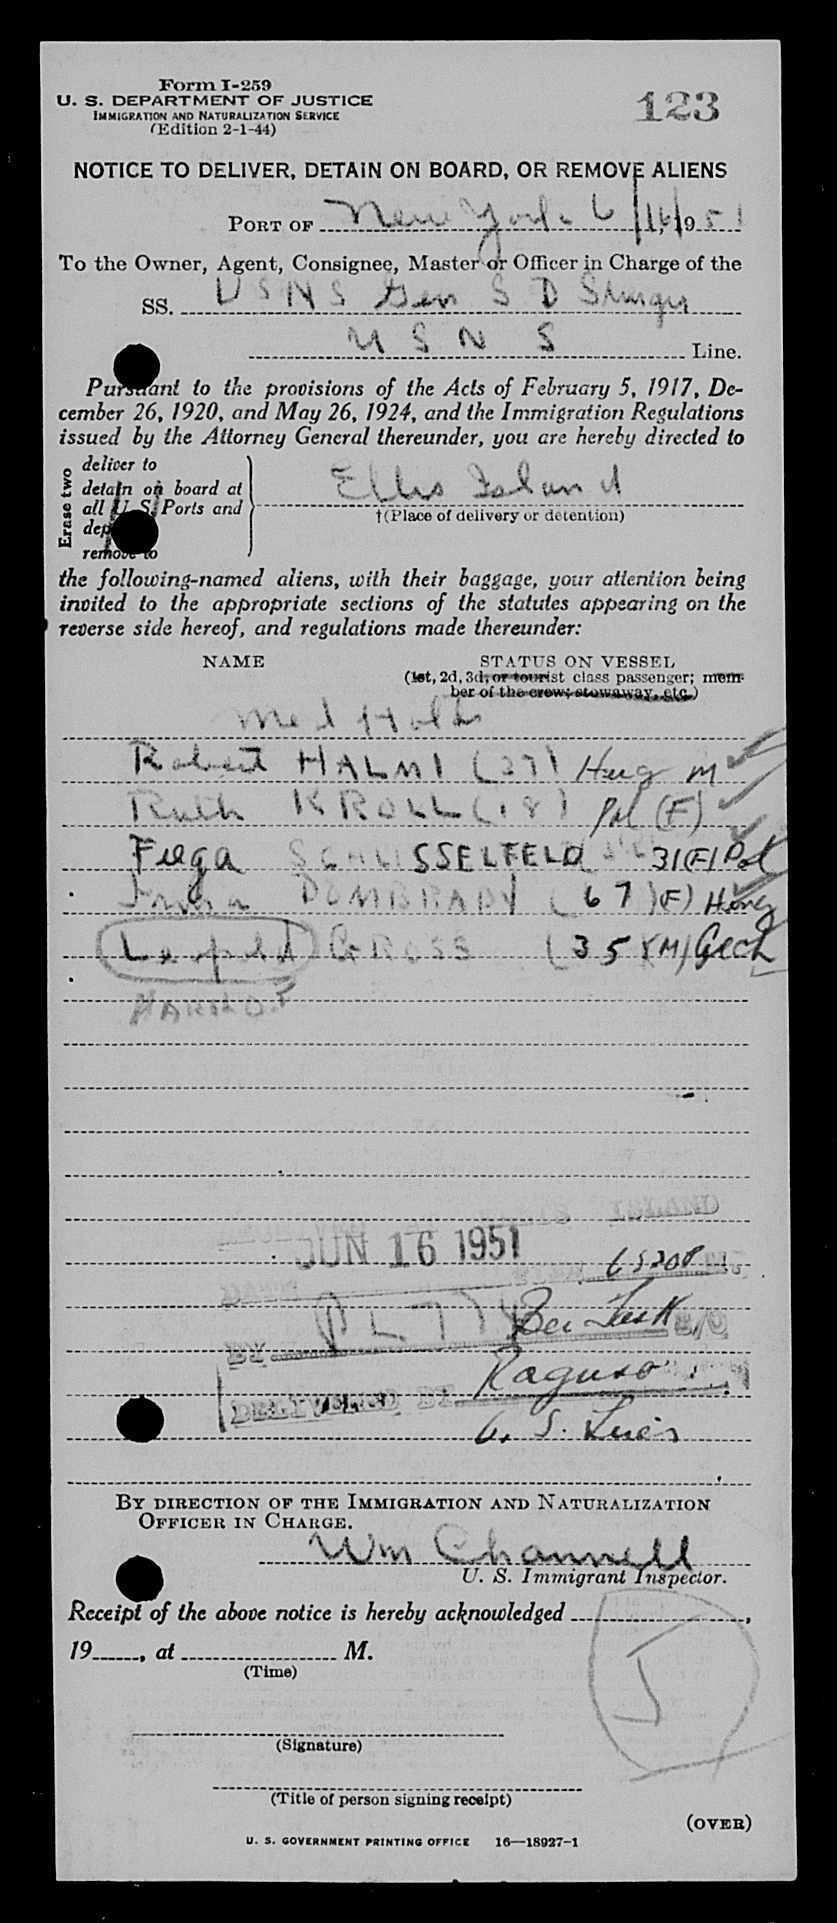 Form I-259
U. S. DEPARTMENT OF JUSTICE
IMMIGRATION AND NATURALIZATION SERVICE
(Edition 2-1-44)
123
NOTICE TO DELIVER, DETAIN ON BOARD, OR REMOVE ALIENS
PORT OF New York 6/16/1951
To the Owner, Agent, Consignee, Master or Officer in Charge of the
SS. USNS Gen S D Sturgis
USNS Line.
Pursuant to the provisions of the Acts of February 5, 1917, De-
cember 26, 1920, and May 26, 1924, and the Immigration Regulations
issued by the Attorney General thereunder, you are hereby directed to
Erase two
deliver to
detain on board at
all U. S. Ports and
remove to
Ellis Island
†(Place of delivery or detention)
the following-named aliens, with their baggage, your attention being
invited to the appropriate sections of the statutes appearing on the
reverse side hereof, and regulations made thereunder:
NAME STATUS ON VESSEL
(1st, 2d, 3d, or tourist class passenger; mem-
ber of the crew; stowaway, etc.)
Med Hold
Robert HALMI (27) Hung M
Ruth KROLL (18) Pol (F)
Fejga SCHLISSELFELD 31 (F) Pol
Irma DOMBRADY (67) (F) Hung
Leopold GROSS (35) (M) Czech
ISLAND
JUN 16 1951
65208
BY
DELIVERED BY Raguso
By DIRECTION OF THE IMMIGRATION AND NATURALIZATION
OFFICER IN CHARGE.
Wm Channell
U. S. Immigrant Inspector.
Receipt of the above notice is hereby acknowledged ,
19 , at M.
(Time)
(Signature)
(Title of person signing receipt)
(OVER)
U. S. GOVERNMENT PRINTING OFFICE 16—18927-1